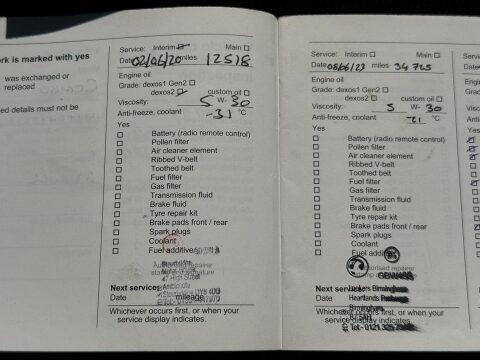 rk is marked with yes
was exchanged or
replaced
ed details must not be
Service: Interim Main
Date 02/06/20 miles 12518
Engine oil
Grade: dexos1 Gen2
dexos2 custom oil
Viscosity: 5 W- 30
Anti-freeze, coolant -31 °C
Yes
Battery (radio remote control)
Pollen filter
Air cleaner element
Ribbed V-belt
Toothed belt
Fuel filter
Gas filter
Transmission fluid
Brake fluid
Tyre repair kit
Brake pads front / rear
Spark plugs
Coolant
Fuel additive
Next service:
Date mileage
Whichever occurs first, or when your
service display indicates.
Service: Interim Main
Date miles 34725
Engine oil
Grade: dexos1 Gen2
dexos2 custom oil
Viscosity: 5 W- 30
Anti-freeze, coolant °C
Yes
Battery (radio remote control)
Pollen filter
Air cleaner element
Ribbed V-belt
Toothed belt
Fuel filter
Gas filter
Transmission fluid
Brake fluid
Tyre repair kit
Brake pads front / rear
Spark plugs
Coolant
Fuel additive
Next service:
Birmingham
Date Heartlands
Whichever occurs first, or when your
service display indicates.